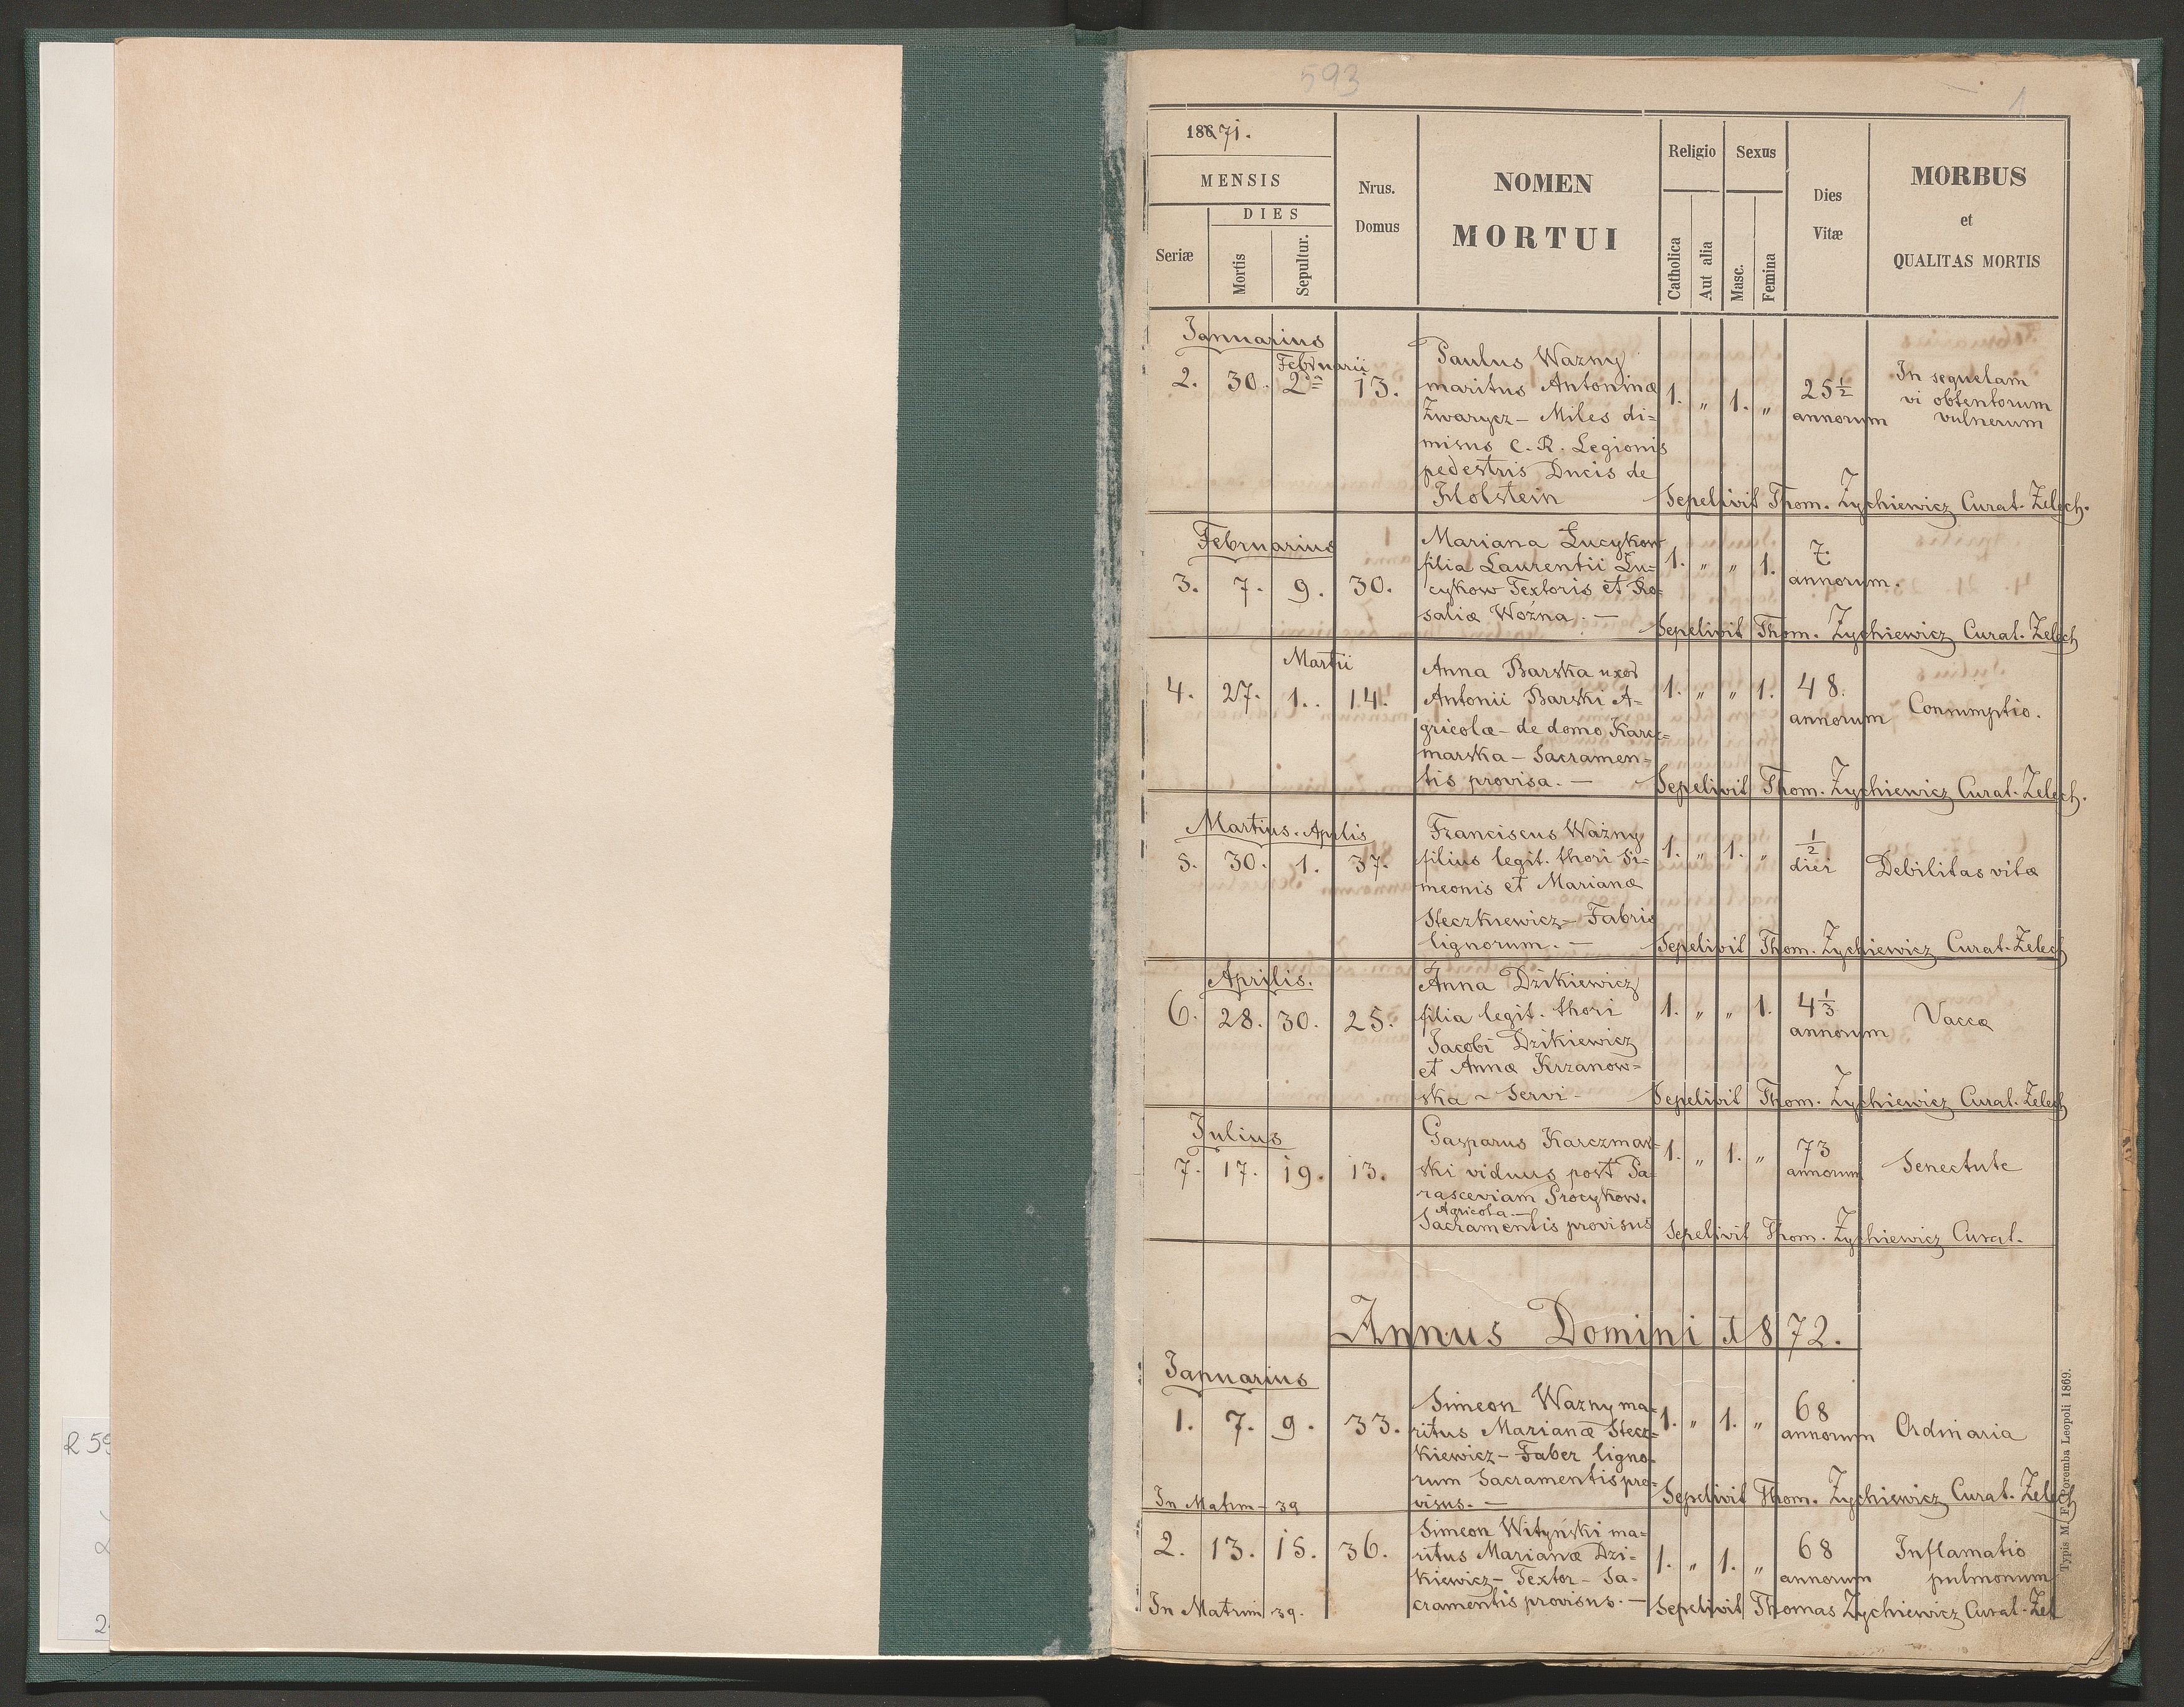 593
1
18671.
MENSIS
DIES
Seriæ
Mortis
Sepultur.
Nrus.
Domus
NOMEN
MORTUI
Religio
Catholica
Aut alia
Sexus
Masc.
Femina
Dies
Vitæ
MORBUS
et
QUALITAS MORTIS
Januarius
Februarii
2. 30. 2da 13.
Paulus Wazny
maritus Antoninæ
Zwarycz – Miles di=
misus C. R. Legionis
pedestris Ducis de
Holstein
1. „ 1. „
25 1/2
annorum
In sequelam
vi obtentorum
vulnerum
Sepelivit Thom. Zychiewicz Curat. Żelech.
Februarius
3. 7. 9. 30.
Mariana Łucykow
filia Laurentii Łu=
cykow Textoris et Ro=
saliæ Woźna. —
1. „ „ 1.
7.
annorum.
Sepelivit Thom. Zychiewicz Curat. Zelech
Martii
4. 27. 1.. 14.
Anna Barska uxor
Antonii Barski A=
gricolæ – de domo Karcz=
marska – Sacramen=
tis provisa. —
1. „ „ 1.
48.
annorum
Consumptio.
Sepelivit Thom. Zychiewicz Curat. Zelech.
Martius. Aprlis
5. 30. 1. 37.
Franciscus Ważny
filius legit. thori Si=
meonis et Marianæ
Steczkiewicz – Fabris
lignorum. —
1. „ 1. „
1/2
diei
Debilitas vitæ
Sepelivit Thom. Zychiewicz Curat. Żelech
Aprilis.
6. 28. 30. 25.
Anna Dzikiewicz
filia legit. thori
Jacobi Dzikiewicz
et Annæ Krzanow=
ska ~ Servi –
1. „ „ 1.
4 1/3
annorum
Vaccæ
Sepelivit Thom. Zychiewicz Curat. Zelech
Julius
7. 17. 19. 13.
Gasparus Karczmar=
ski viduus post Pa=
rasceviam Procykow.
Agricola.—
Sacramentis provisus
1. „ 1. „
73
annorum
Senectute
Sepelivit Thom. Zychiewicz Curat.
Annus Domini 1872.
Januarius
1. 7. 9. 33.
Simeon Wazny ma=
ritus Marianæ Stecz=
kiewicz – Faber ligno=
rum Sacramentis pro=
visus. —
1. „ 1. „
68
annorum
Ordinaria
In Matrm – 39
Sepelivit Thom. Zychiewicz Curat. Zelech
2. 13. 15. 36.
Simeon Wityński ma=
ritus Marianæ Dzi=
kiewicz – Textor – Sa=
cramentis provisus. —
1. „ 1. „
68
annorum
Inflamatio
pulmonum
In Matrim 39.
Sepelivit Thomas Zychiewicz Curat. Zel
Typis M. F. Poremba Leopoli 1869.